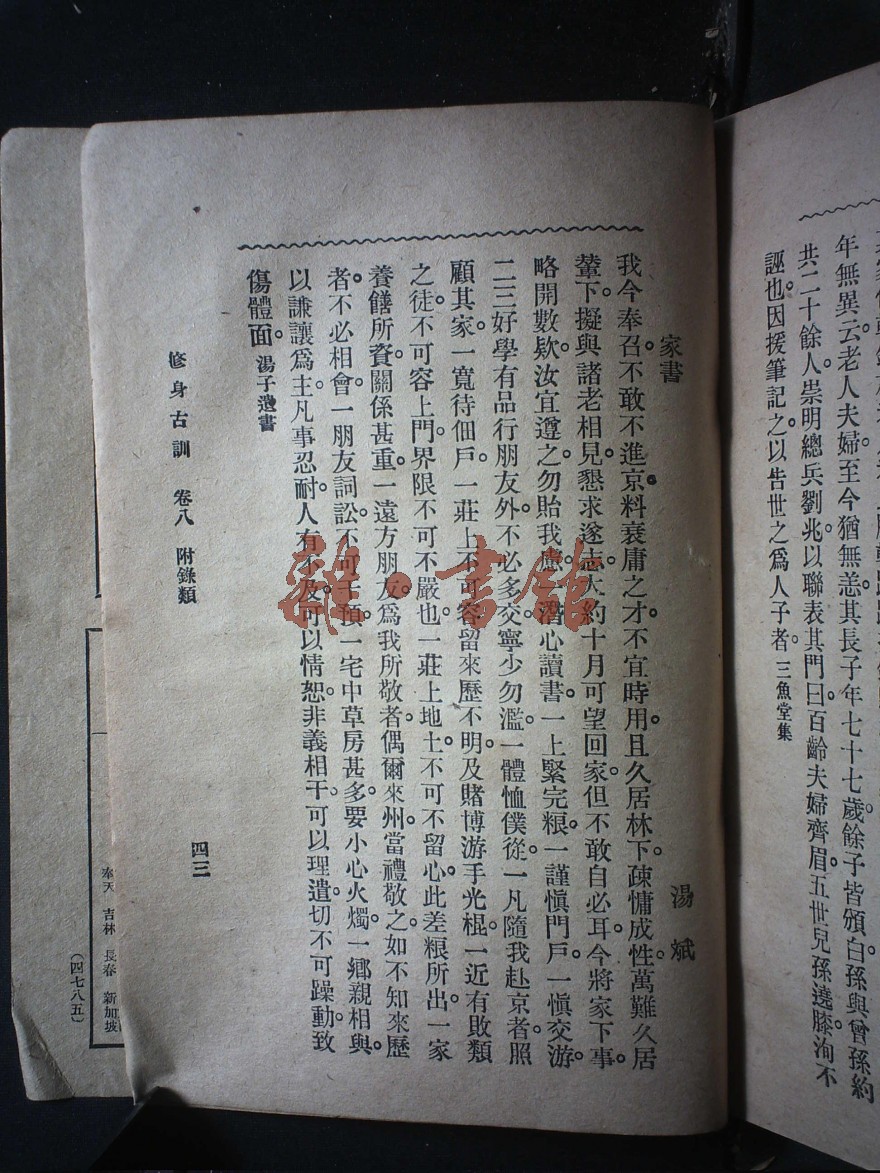 年無異云老人夫婦至今猶無恙其長子年七十七歲餘子皆頒白孫與曾孫約
共二十餘人崇明總兵劉兆以聯表其門曰百齡夫婦齊眉五世兒孫遶膝洵不
誣也因援筆記之以告世之爲人子者。三魚堂集
家書 湯斌
我今奉召。不敢不進京。料衰庸之才。不宜時用。且久居林下。疎慵成性。萬難久居
輦下。擬與諸老相見。懇求遂志。大約十月可望回家。但不敢自必耳。今將家下事
略開數欵。汝宜遵之。勿貽我慮。潛心讀書。一上緊完粮。一謹愼門戶。一愼交游。
二三好學有品行朋友外。不必多交。寧少勿濫。一體恤僕從。一凡隨我赴京者。照
顧其家。一寬待佃戶。一莊上不可容留來歷不明。及賭博游手光棍。一近有敗類
之徒。不可容上門。界限不可不嚴也。一莊上地土。不可不留心。此差粮所出。一家
養饍所資。關係甚重。一遠方朋友。爲我所敬者。偶爾來州。當禮敬之。如不知來歷
者。不必相會。一朋友詞訟。不可干預。一宅中草房甚多。要小心火燭。一鄉親相與。
以謙讓爲主。凡事忍耐。人有不及。可以情恕。非義相干。可以理遣。切不可躁動。致
傷體面。湯子遺書
修身古訓 卷八 附錄類 四三
奉天 吉林 長春 新加坡
(四七八五)
雜·書館